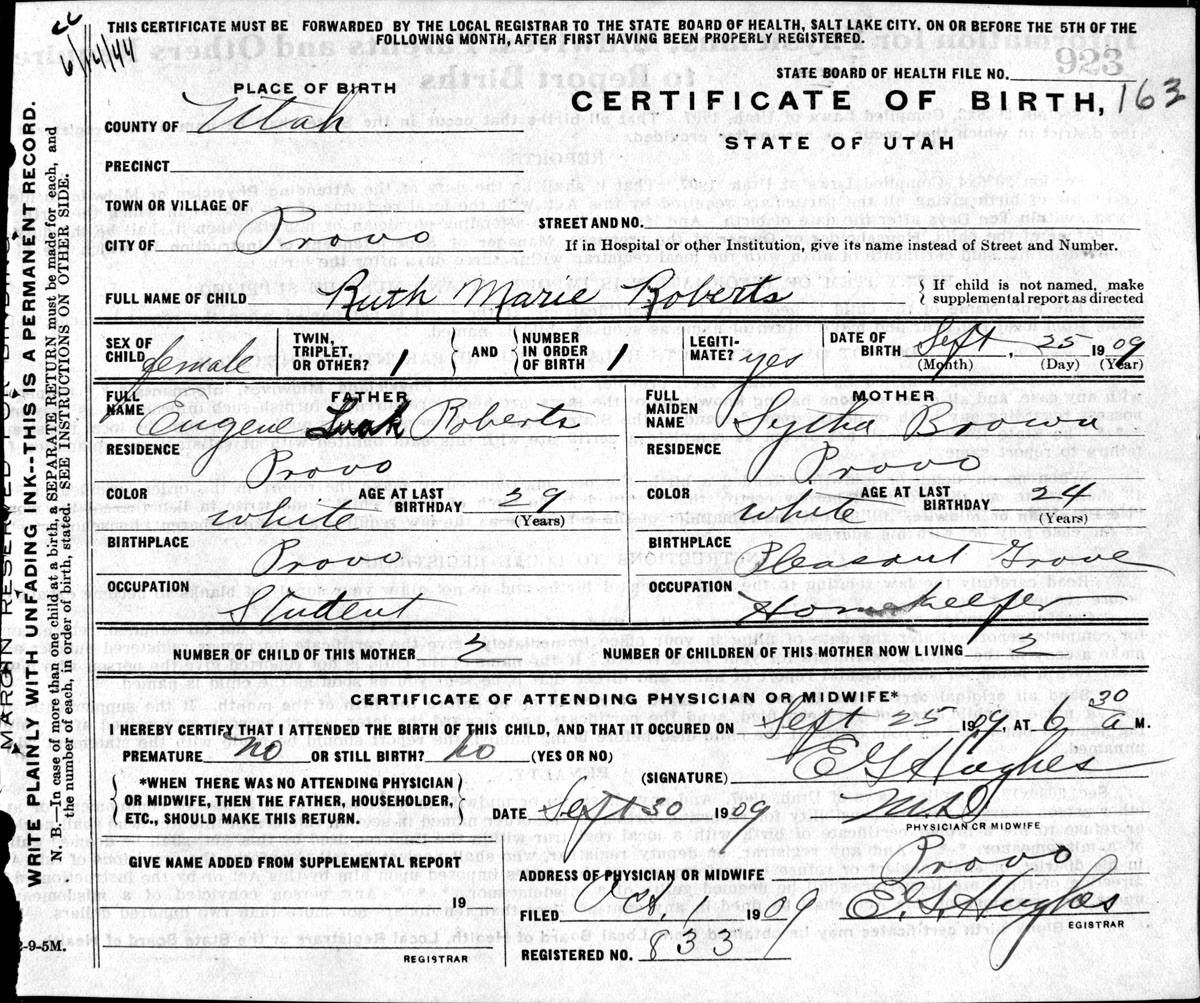 cc
6/14/44
THIS CERTIFICATE MUST BE FORWARDED BY THE LOCAL REGISTRAR TO THE STATE BOARD OF HEALTH, SALT LAKE CITY, ON OR BEFORE THE 5TH OF THE
FOLLOWING MONTH, AFTER FIRST HAVING BEEN PROPERLY REGISTERED.
STATE BOARD OF HEALTH FILE NO. 923
PLACE OF BIRTH
CERTIFICATE OF BIRTH, 163
STATE OF UTAH
COUNTY OF Utah
PRECINCT
TOWN OR VILLAGE OF
STREET AND NO.
CITY OF Provo
If in Hospital or other Institution, give its name instead of Street and Number.
FULL NAME OF CHILD Ruth Marie Roberts
If child is not named, make
supplemental report as directed
SEX OF CHILD female
TWIN, TRIPLET, OR OTHER? 1
AND
NUMBER IN ORDER OF BIRTH 1
LEGITIMATE? yes
DATE OF BIRTH Sept, 25 1909
(Month) (Day) (Year)
FATHER
FULL NAME Eugene Roberts
RESIDENCE Provo
COLOR White
AGE AT LAST BIRTHDAY 29
(Years)
BIRTHPLACE Provo
OCCUPATION Student
MOTHER
FULL MAIDEN NAME Sytha Brown
RESIDENCE Provo
COLOR White
AGE AT LAST BIRTHDAY 24
(Years)
BIRTHPLACE Pleasant Grove
OCCUPATION Homekeeper
NUMBER OF CHILD OF THIS MOTHER 3
NUMBER OF CHILDREN OF THIS MOTHER NOW LIVING 3
CERTIFICATE OF ATTENDING PHYSICIAN OR MIDWIFE*
I HEREBY CERTIFY THAT I ATTENDED THE BIRTH OF THIS CHILD, AND THAT IT OCCURED ON Sept 25 1909, AT 6 30 a M.
PREMATURE no OR STILL BIRTH? no (YES OR NO)
(SIGNATURE) E G Hughes
*WHEN THERE WAS NO ATTENDING PHYSICIAN
OR MIDWIFE, THEN THE FATHER, HOUSEHOLDER,
ETC., SHOULD MAKE THIS RETURN.
DATE Sept 30 1909
M.D.
PHYSICIAN OR MIDWIFE
GIVE NAME ADDED FROM SUPPLEMENTAL REPORT
19
REGISTRAR
ADDRESS OF PHYSICIAN OR MIDWIFE Provo
FILED Oct. 1 1909
E. G. Hughes
REGISTRAR
REGISTERED NO. 833
2-9-5M.
MARGIN RESERVED FOR BINDING
WRITE PLAINLY WITH UNFADING INK--THIS IS A PERMANENT RECORD.
N. B.--In case of more than one child at a birth, a SEPARATE RETURN must be made for each, and
the number of each, in order of birth, stated. SEE INSTRUCTIONS ON OTHER SIDE.